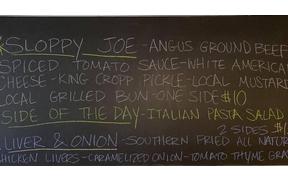 SLOPPY JOE-ANGUS GROUND BEEF
SPICED TOMATO SAUCE-WHITE AMERICAN
CHEESE-KING CROPP PICKLE-LOCAL MUSTARD
LOCAL GRILLED BUN-ONE SIDE $10
SIDE OF THE DAY-ITALIAN PASTA SALAD
2 SIDES
LIVER & ONION-SOUTHERN FRIED ALL NATUR
CHICKEN LIVERS-CARAMELIZED ONION-TOMATO THYME GRA